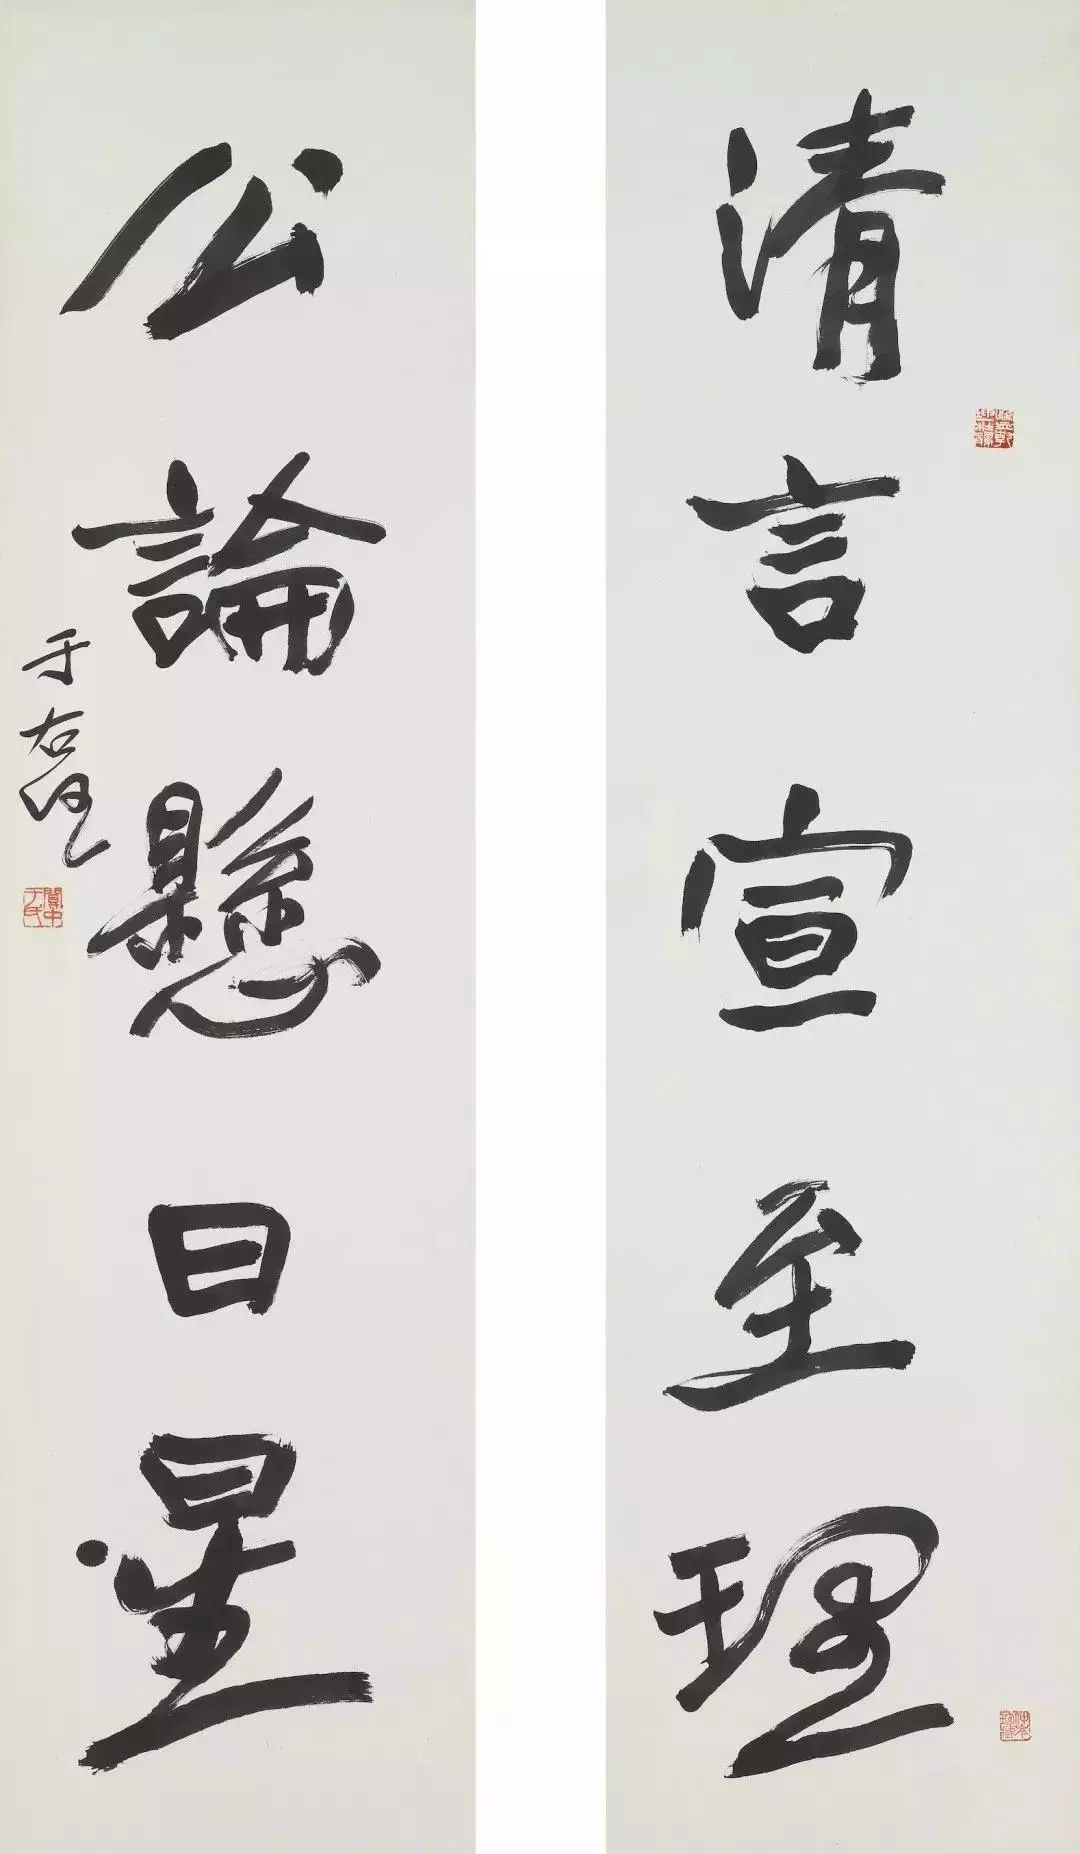 清言宣至理
公論懸日星
于右任
關中于氏